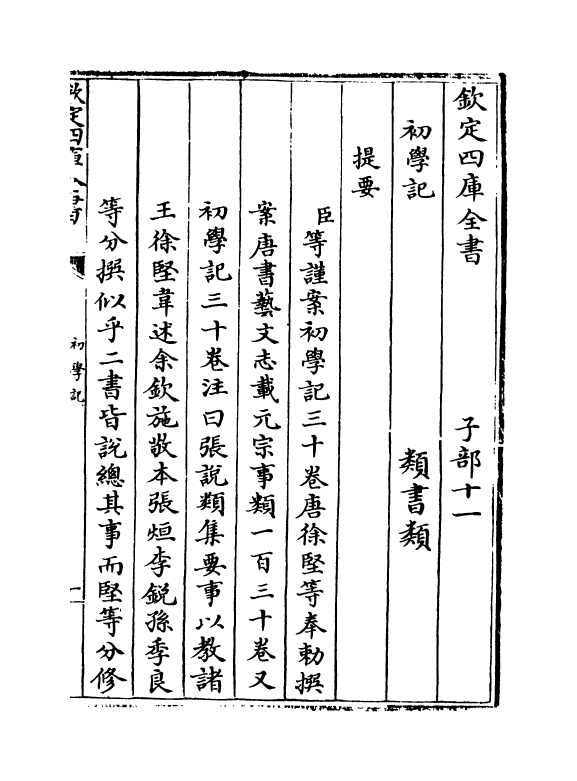 欽定四庫全書　子部十一
初學記　類書類
提要
臣等謹案初學記三十卷唐徐堅等奉勅撰
案唐書藝文志載元宗事類一百三十卷又
初學記三十卷注曰張說類集要事以教諸
王徐堅韋述余欽施敬本張烜李銳孫季良
等分撰似乎二書皆說總其事而堅等分修
欽定四庫全書
初學記
一